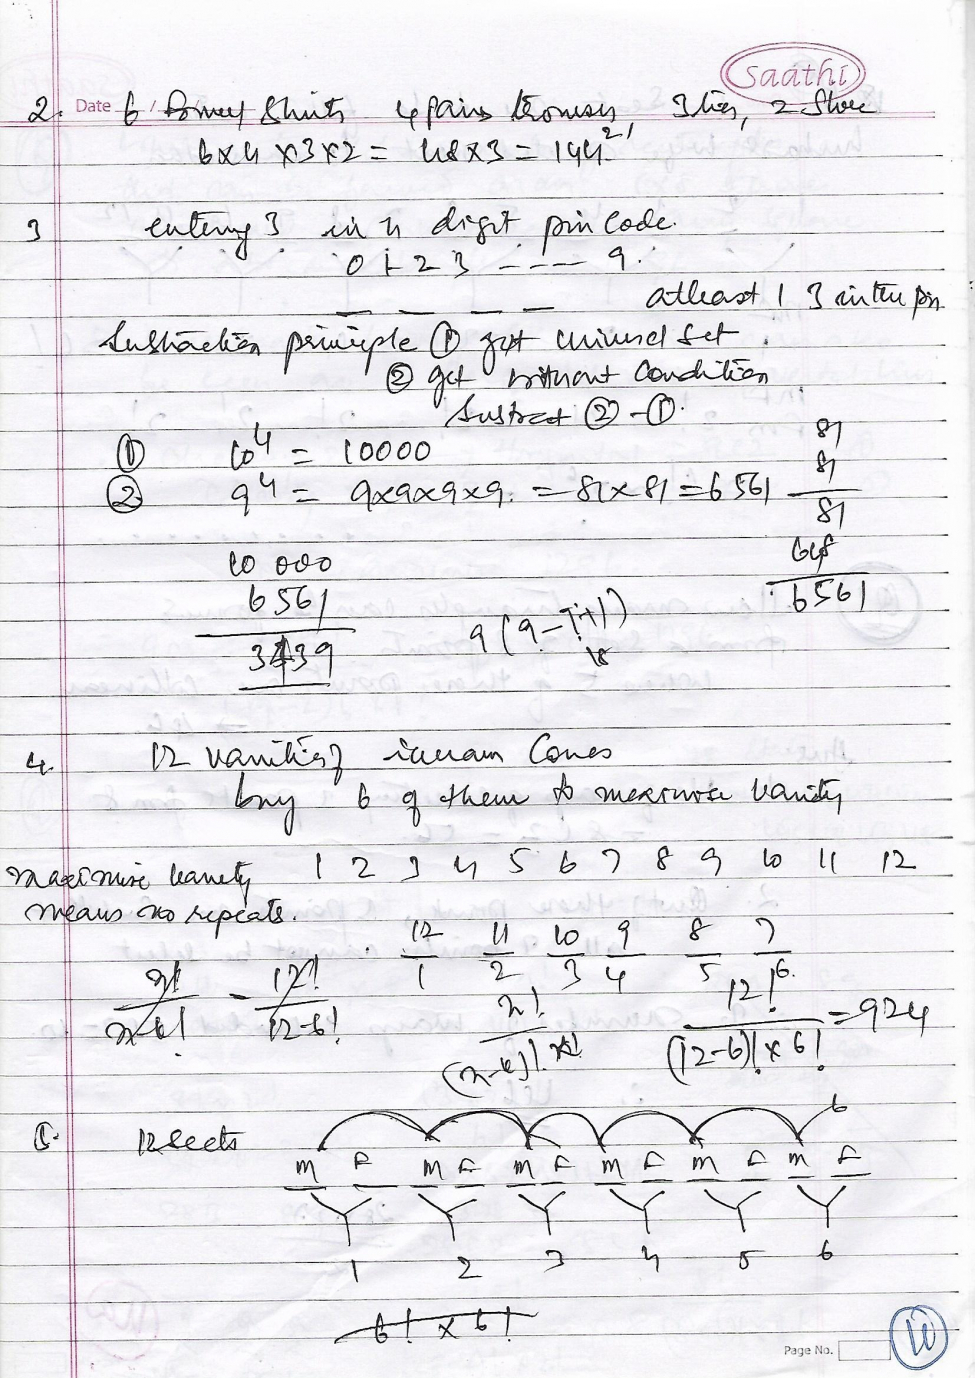 Saathi
2. Date / / 6 Shirts 4 pairs trousers, 3 ties, 2 Shoe
6x4 x3x2 = 48x3 = 144.
3 entering 3 in 4 digit pin code.
0 1 2 3 ---- 9.
_ _ _ _ atleast 1 3 in the pin
Substraction principle ① get universal Set.
② get without Condition
Substract ② - ①.
① 10⁴ = 10000
② 9⁴ = 9x9x9x9. = 81 x 81 = 6561
81
81
81
648
6561
10 000
6561
3439
9 (9-
4. 12 varieties of icecream Cones
buy 6 of them to maximise Variety
maximise variety 1 2 3 4 5 6 7 8 9 10 11 12
means no repeats.
12/1 11/2 10/3 9/4 8/5 7/6.
n!/n-6! = 12!/12-6! n!/(n-r)! x r! 12!/(12-6)! x 6! = 924
6
5. 12 seats
M F M F M F M F M F M F
1 2 3 4 5 6
6! x 6!
Page No.